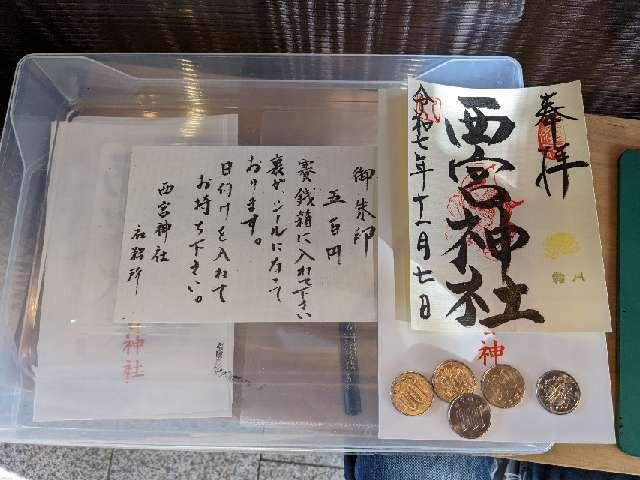 奉拝
西宮神社
令和七年十二月七日
神
御朱印
五百円
賽銭箱に入れて下さい
裏がシールになって
おります。
日付けを入れて
お持ち下さい。
西宮神社
社務所
宮神社